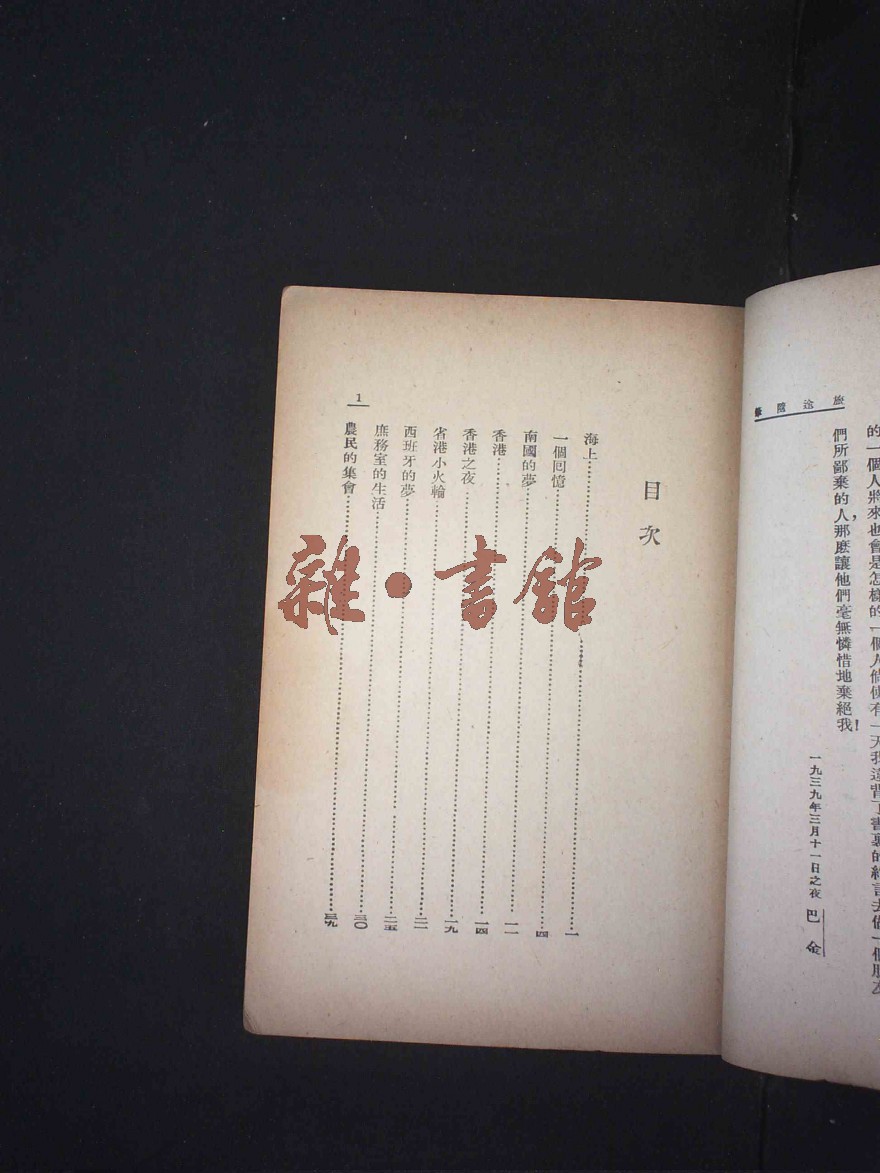 旅途隨筆
的一個人將來也會是怎樣的一個人倘使有一天我違背了書裏的約言去做一個朋友
們所鄙棄的人，那麽讓他們毫無憐惜地棄絕我！
一九三九年三月十一日之夜 巴金
目次
海上 一
一個回憶 四
南國的夢 一一
香港 一四
香港之夜 一九
省港小火輪 二一
西班牙的夢 二五
庶務室的生活 三〇
農民的集會 三九
1
雜·書館